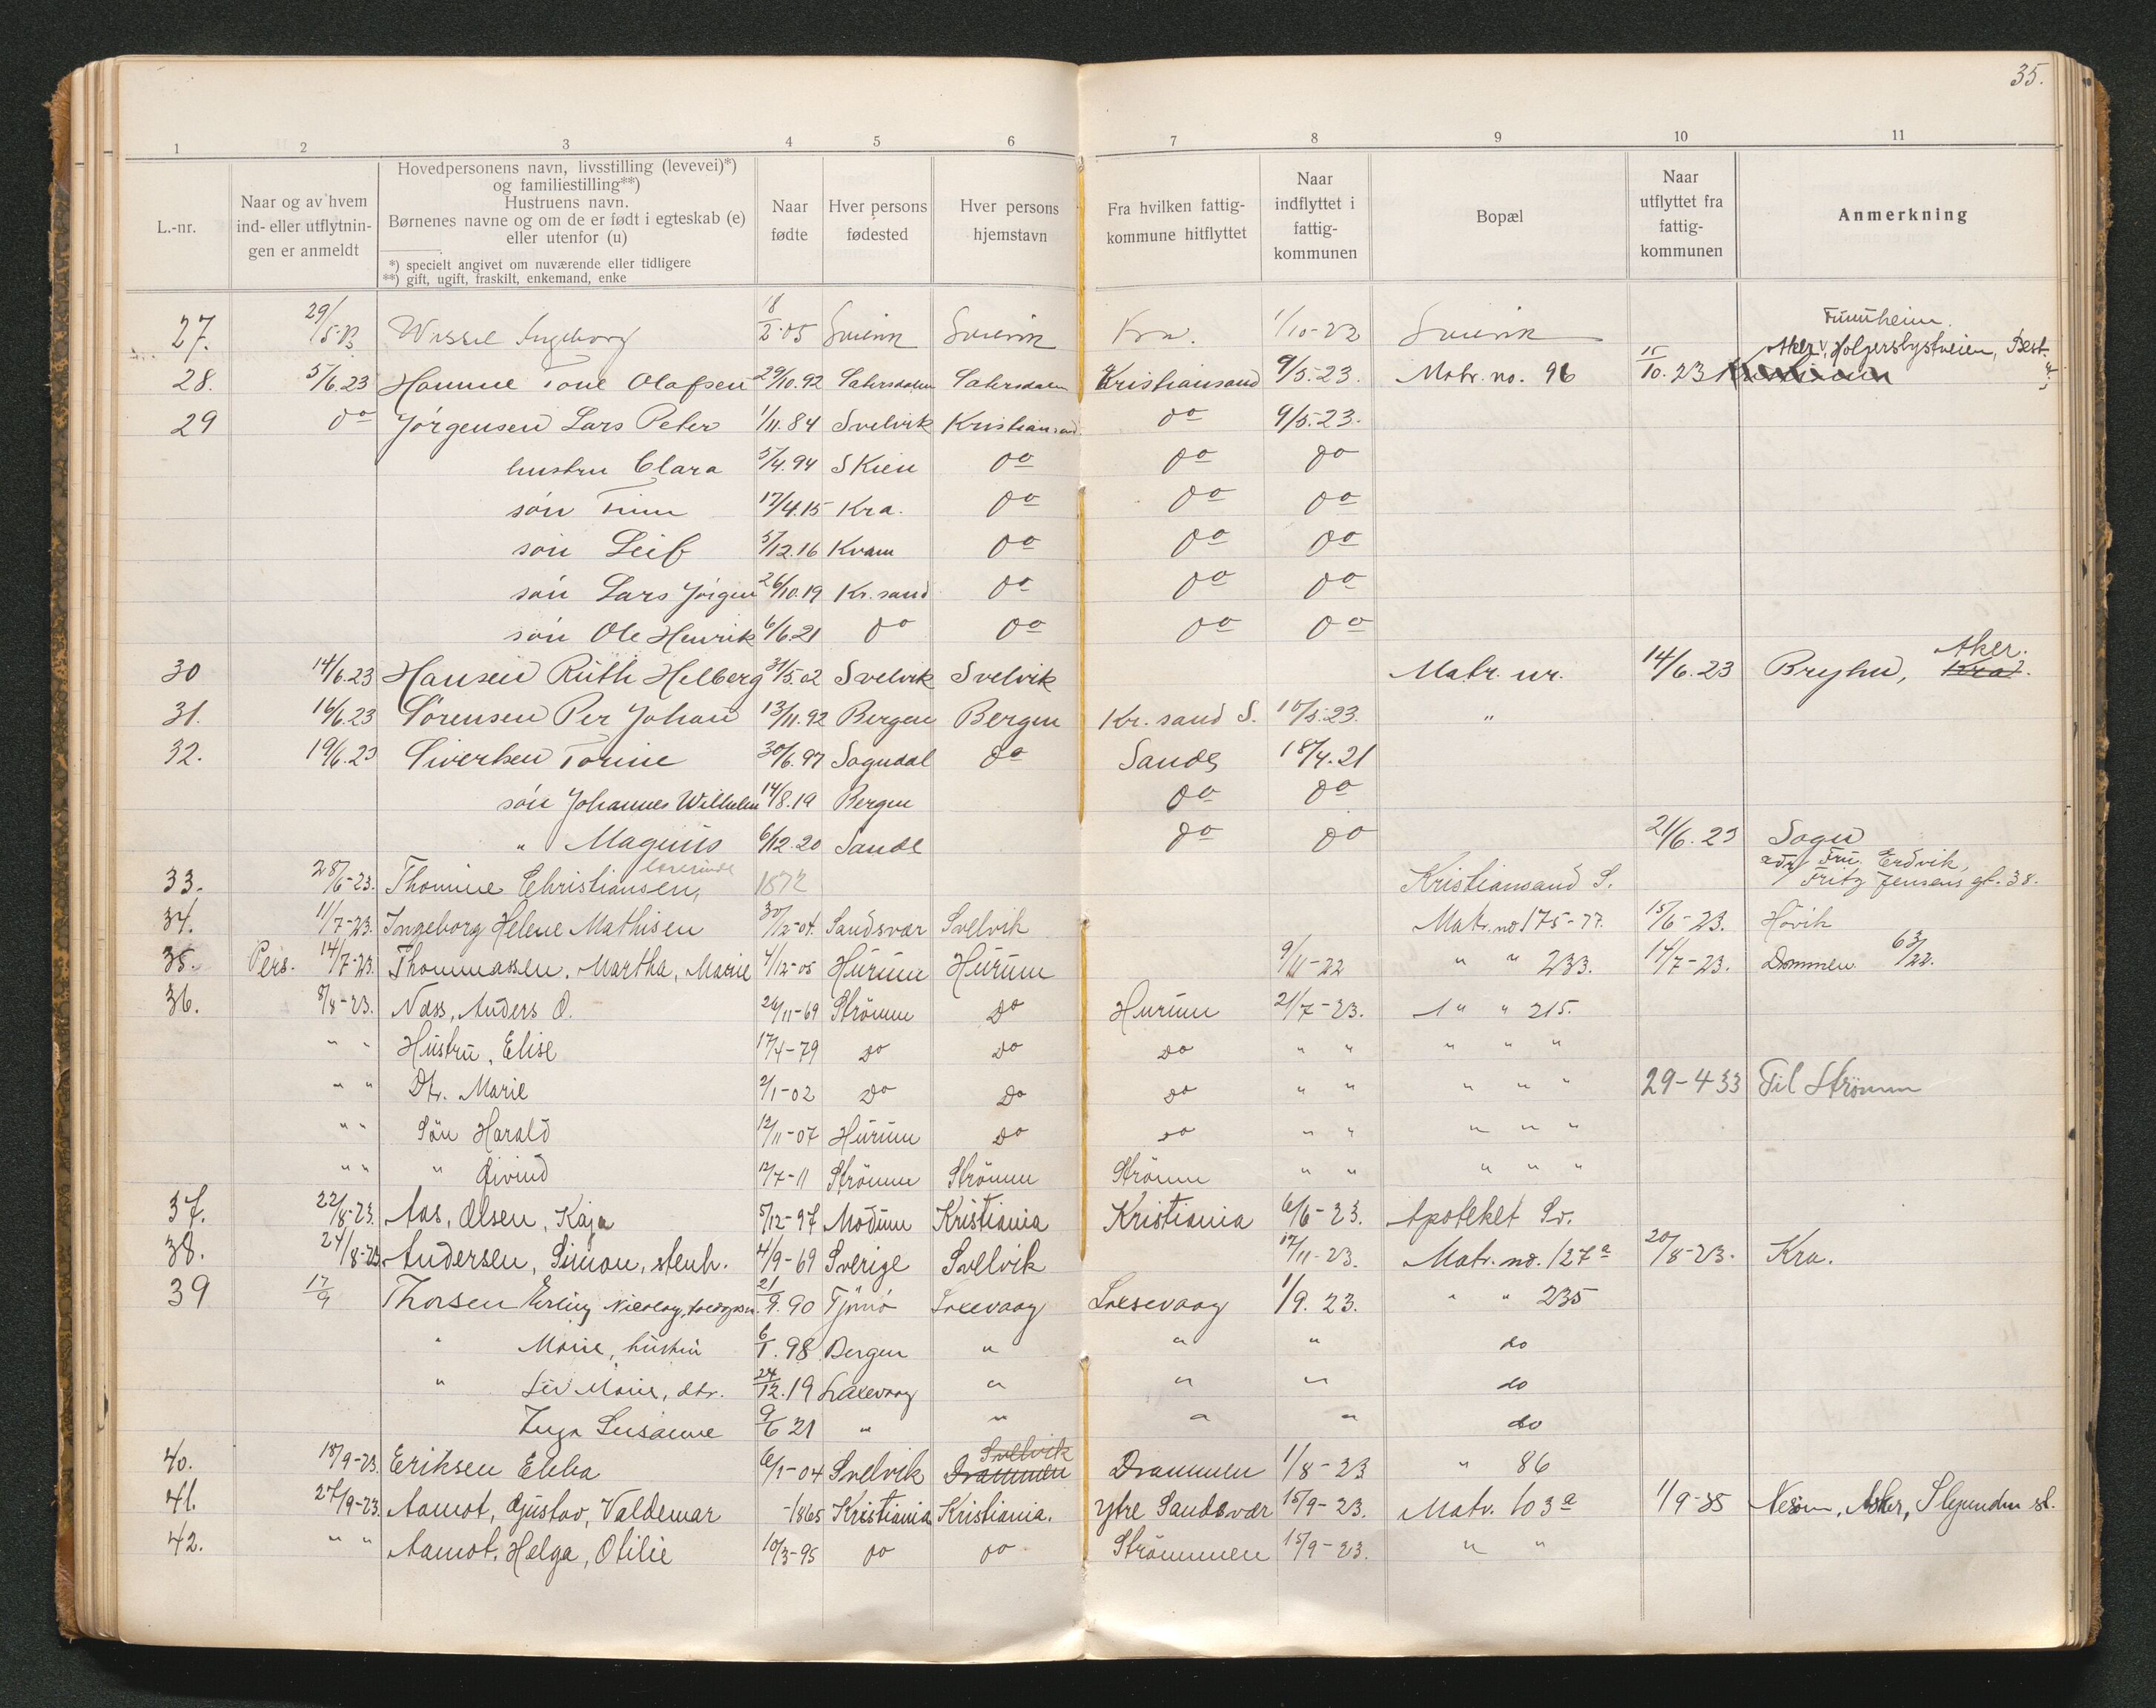 35.
1 2 3 4 5 6 7 8 9 10 11
L.-nr.
Naar og av hvem
ind- eller utflytnin-
gen er anmeldt
Hovedpersonens navn, livsstilling (levevei)*)
og familiestilling**)
Hustruens navn.
Børnenes navne og om de er født i egteskab (e)
eller utenfor (u)
*) specielt angivet om nuværende eller tidligere
**) gift, ugift, fraskilt, enkemand, enke
Naar
fødte
Hver persons
fødested
Hver persons
hjemstavn
Fra hvilken fattig-
kommune hitflyttet
Naar
indflyttet i
fattig-
kommunen
Bopæl
Naar
utflyttet fra
fattig-
kommunen
Anmerkning
27. 29/5-23 Wessel Ingeborg 18/2-05 Svelvik Svelvik Kra. 1/10-22 Svelvik
28. 5/6.23 Hamme Tone Olafsen 29/10.92 Sætersdalen Sætersdalen Kristiansand 9/5.23. Matr. no. 96 15/10.23 Aker, Holgerslystveien, Best.
29 do Jörgensen Lars Peter 1/11.84 Svelvik Kristiansand. do 9/5.23.
hustru Clara 5/4.94 Skien do do do
sön Finn 17/4.15 Kra. do do do
sön Leif 5/12.16 Kvam do do do
sön Lars Jörgen 26/10.19 Kr.sand do do do
sön Ole Henrik 6/6.21 do do do do
30 14/6.23 Hansen Ruth Helberg 31/5.02 Svelvik Svelvik Matr. nr. 14/6.23 Bryhn, Kra. Aker.
31. 16/6.23 Sörensen Per Johan 13/11.92 Bergen Bergen Kr.sand S. 10/5.23. "
32. 19/6.23 Siversen Torine 30/6.97 Sogndal do Sande 18/4.21
sön Johannes Wilhelm 14/8.19 Bergen do do
" Magnus 6/12.20 Sande do do 21/6.23 Sogn
33. 28/6-23. Thomine Christiansen, lærerinde 1872 Kristiansand S. adr. Fru Erdvik, Fritz Jensens gt. 38.
34. 11/7-23. Ingeborg Helene Mathisen 30/12-04. Sandsvær Svelvik Matr. no 175-77. 15/6-23. Hövik
35. Pers. 14/7-23. Thommassen, Martha, Marie 4/12-05 Hurum Hurum 9/11-22 " " 233. 14/7-23. Drammen. 63/22.
36. 8/8-23. Næss, Anders O. 26/11-69 Strömm do Hurum 21/7-23. " " 215.
" " Hustru, Elise 17/4-79 do do do " " " " "
" " Dtr. Marie 2/1-02 do do do " " " " " 29-4 33 Til Strömm
" " Sön Harald 12/11-07 Hurum do do " " " " "
" " " Eivind 12/7-11 Strömm Strömm Strömm " " " " "
37. 22/8-23. Aas, Olsen, Kaja 5/12-97 Modum Kristiania Kristiania 6/6-23. Apoteket Sv.
38. 24/8-23 Andersen, Simon, stenh. 4/9-69 Sverige Svelvik 17/11-23. Matr. no. 127a 20/8-23. Kra.
39 17/9 Thorsen Erling Nicolay, 21/9.90 Tjömö Laxevaag Laksevaag 1/9.23. " " 235
" Marie, hustru 6/1.98 Bergen " " " do
" Liv Marie, dtr. 24/12.19 Laxevaag " " " do
Inga Susanne 9/6 21 " " " " do
40. 18/9-23. Eriksen Ebba 6/1-04 Svelvik Drammen Svelvik Drammen 1/8-23 " 86
41. 27/9-23. Aamot, Gustav, Valdemar -1865 Kristiania Kristiania. Ytre Sandsvær 15/9-23. Matr. 103a 1/9-35 Nesöen, Asker, Slependen st.
42. " " Aamot, Helga, Otilie 10/3-95 do do Strömmen 15/9-23. " "